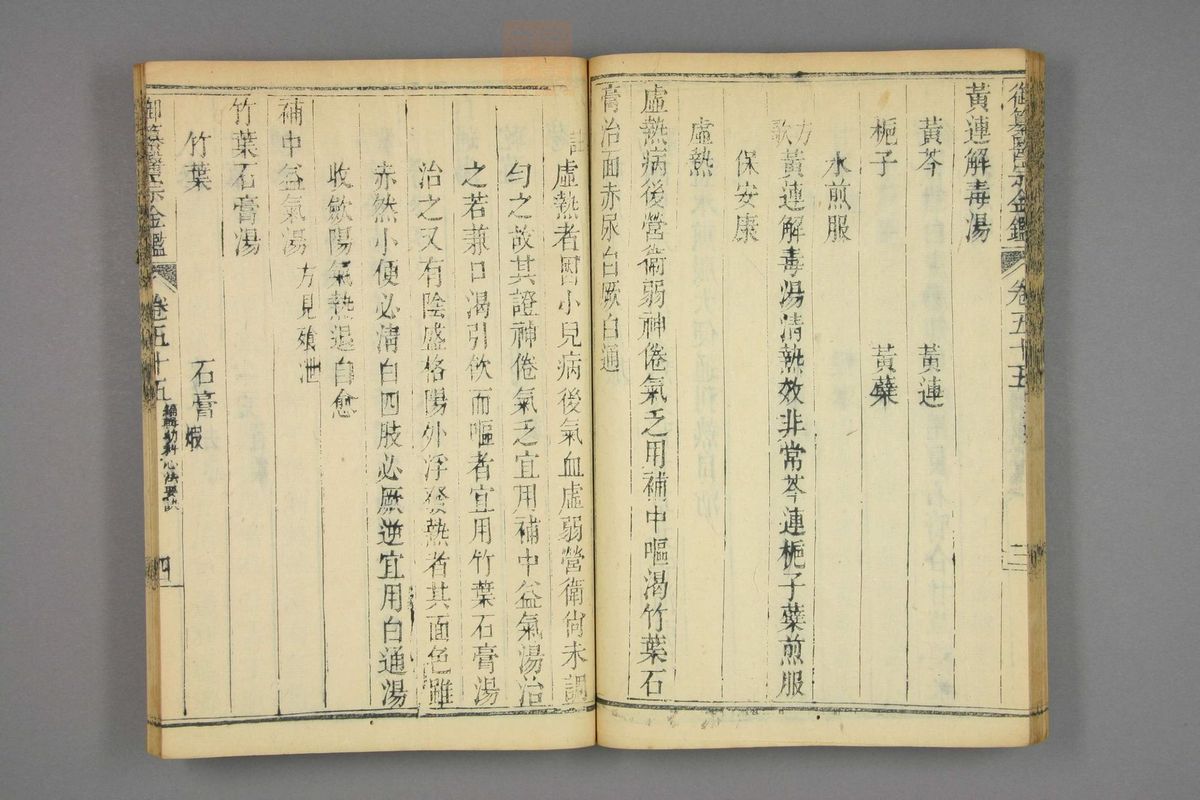 御纂醫宗金鑑 卷五十五 三
黃連解毒湯
黃芩 黃連
梔子 黃蘗
水煎服
方歌 黃連解毒湯清熱效非常芩連梔子蘗煎服
保安康
虛熱
虛熱病後營衞弱神倦氣乏用補中嘔渴竹葉石
膏治面赤尿白厥白通
註 虛熱者因小兒病後氣血虛弱營衞尚未調
勻之故其證神倦氣乏宜用補中益氣湯治
之若兼口渴引飲而嘔者宜用竹葉石膏湯
治之又有陰盛格陽外浮發熱者其面色雖
赤然小便必清白四肢必厥逆宜用白通湯
收斂陽氣熱退自愈
補中益氣湯 方見飧泄
竹葉石膏湯
竹葉 石膏煆
御纂醫宗金鑑 卷五十五 編輯幼科心法要訣 四